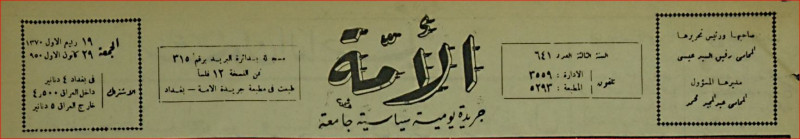 صاحبها ورئيس تحريرها
المحامي رفيق السيد عيسى
مديرها المسؤول
المحامي عبد الحميد محمد
السنة الثالثة العدد ٦٤١
تلفون
الادارة : ٣٥٥٩
المطبعة : ٥٢٩٣
الأمة
جريدة يومية سياسية جامعة
مسجلة بدائرة البريد برقم ٣١٥
ثمن النسخة ١٢ فلساً
طبعت في مطبعة جريدة الامة - بغداد
الجمعة
١٩ ربيع الاول ١٣٧٠
٢٩ كانون الاول ٩٥٠
الاشتراك
في بغداد ٤ دنانير
داخل العراق ٤,٥٠٠
خارج العراق ٥ دنانير